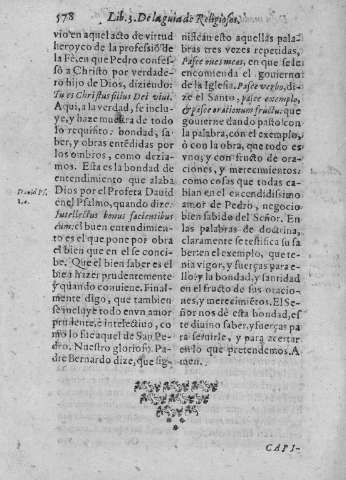 578 Lib. 3. De la guia de Religiosos.
vio en aquel acto de virtud
heroyco de la professiõ de
la Fè, en que Pedro confes-
sò a Christo por verdade-
ro hijo de Dios, diziendo:
Tu es Christus filius Dei viui.
Aqui, a la verdad, se inclu-
ye, y haze muestra de todo
lo requisito: bondad, sa-
ber, y obras entẽdidas por
los ombros, como dezia-
mos. Esta es la bondad de
entendimiento que alaba
Dios por el Profeta Dauid
en el Psalmo, quando dize:
Intellectus bonus facientibus
eum. el buen entendimien-
to es el que pone por obra
el bien que en el se conci-
be. Que el bien saber es el
bien hazer prudentemente
y quando conuiene. Final-
mente digo, que tambien
se incluye todo en vn amor
prudente, è intelectiuo, co-
mo lo fue aquel de San Pe-
dro. Nuestro glorioso Pa-
dre Bernardo dize, que sig-
nificãn esto aquellas pala-
bras tres vezes repetidas,
Pasce oues meas, en que se le
encomienda el gouierno
de la Iglesia. Pasce verbo, di-
ze el Santo, pasce exemplo,
& pasce orationum fructu. que
gouierne dando pasto con
la palabra, con el exemplo,
ò con la obra, que todo es
vno; y con fructo de ora-
ciones, y merecimientos:
como cosas que todas ca-
bian en el encendidissimo
amor de Pedro, negocio
bien sabido del Señor. En
las palabras de doctrina,
claramente se testifica su sa-
ber: en el exemplo, que te-
nia vigor, y fuerças para e-
llo: y la bondad, y santidad
en el fructo de sus oracio-
nes, y merecimiẽtos. El Se-
ñor nos dè esta bondad, es
te diuino saber, y fuerças pa
ra seruirle, y para acertar
en lo que pretendemos. A-
men.
CAPI-